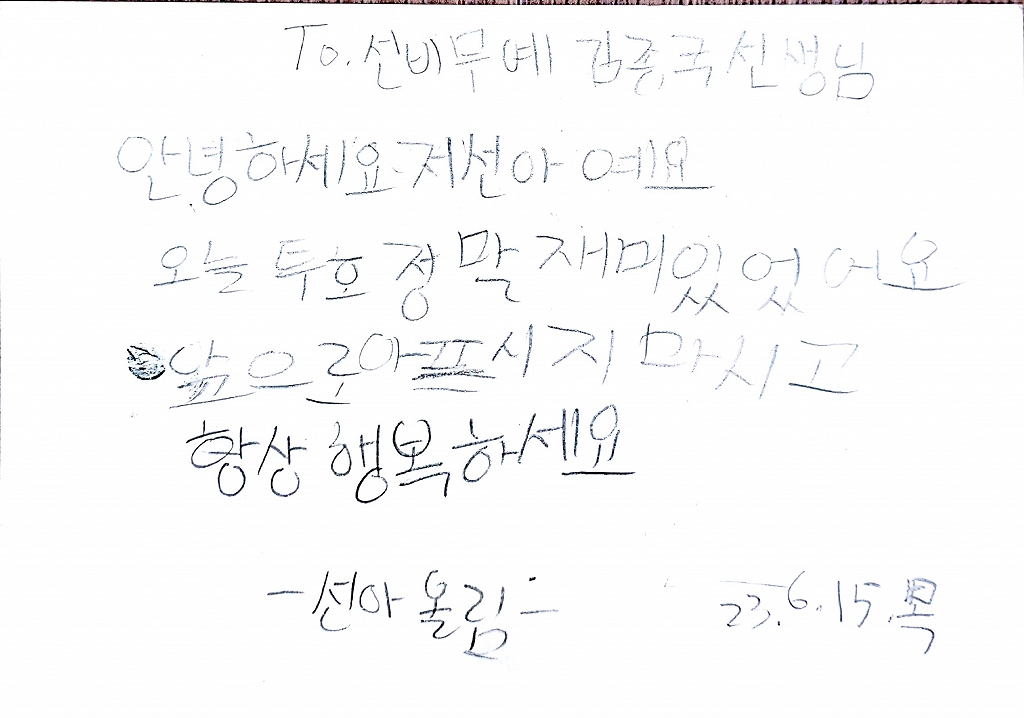 To. 선비무예 김종국선생님
안녕하세요 저선아예요
오늘 투호 정말 재미있었어요
앞으로아프시지 마시고
항상 행복하세요
- 선아 올림 -
23. 6. 15. 목